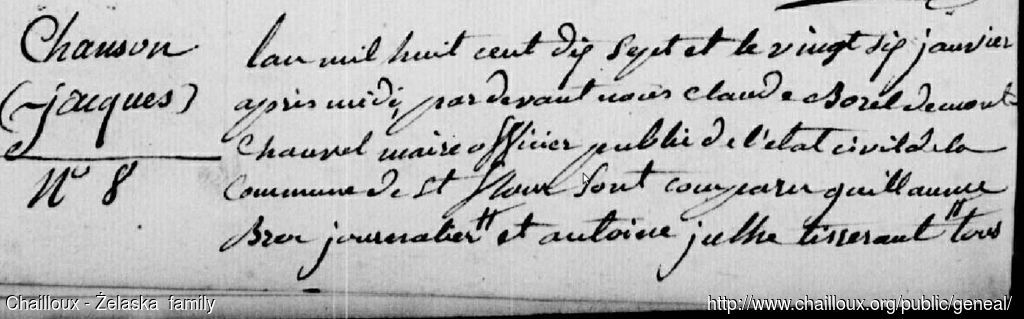 Chanson
(jacques)
N° 8
lan mil huit cent dix sept et le vingt six janvier
après midi pardevant nous claude Borel demont
Chauvel maire officier public de l'état civil de la
Commune de St flour Sont comparu guillaume
journalier et antoine julhe tisserant tous
Chailloux - Żelaska family
http://www.chailloux.org/public/geneal/